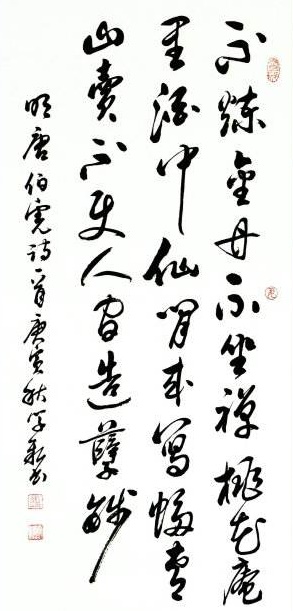 不煉金丹不坐禪桃花庵
里酒中仙閒来寫幅青
山賣不使人間造孽錢
明唐伯虎詩一首庚寅秋